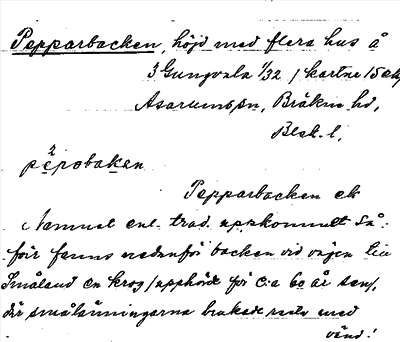 Pepparbacken, höjd med flera hus å
3 Gungvala 1/32 / kartne 15
Asarums sn, Bräkne hd,
Blek. l.
pèpobaken
Pepparbacken ek
Namnet enl. trad. uppkommit så:
förr fanns nedanför backen vid vägen till
Småland en krog / upphörde för c:a 60 år sen/,
där smålänningarna brukade rasta med
vänd!